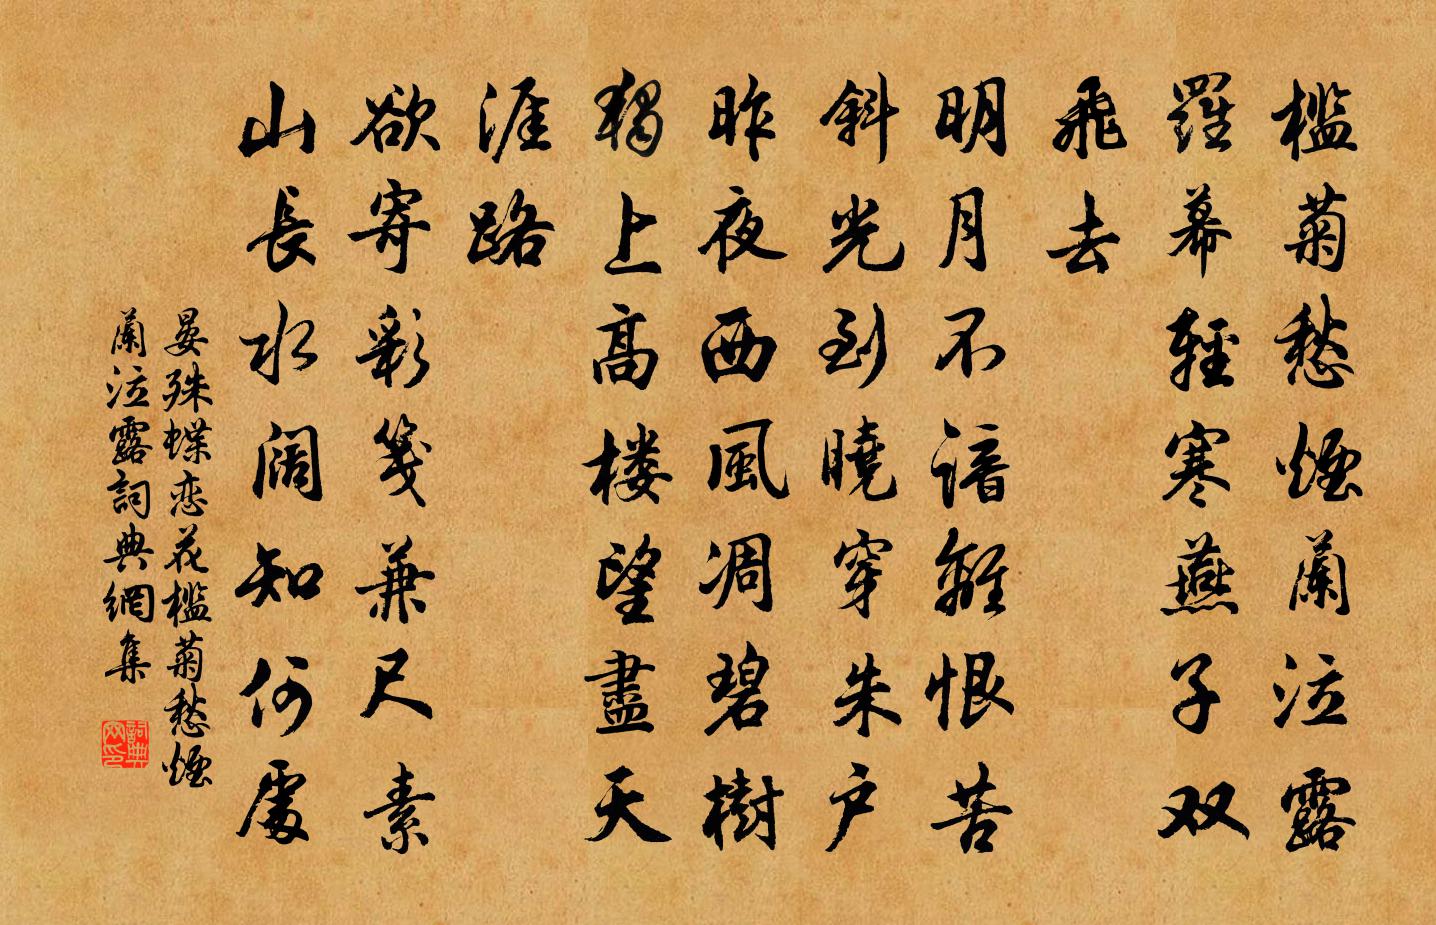 檻菊愁煙蘭泣露
羅幕輕寒燕子双
飛去
明月不諳離恨苦
斜光到曉穿朱户
昨夜西風凋碧樹
獨上高楼望盡天
涯路
欲寄彩箋兼尺素
山長水闊知何處
晏殊蝶恋花檻菊愁煙
蘭泣露詞典網集
詞典
网印